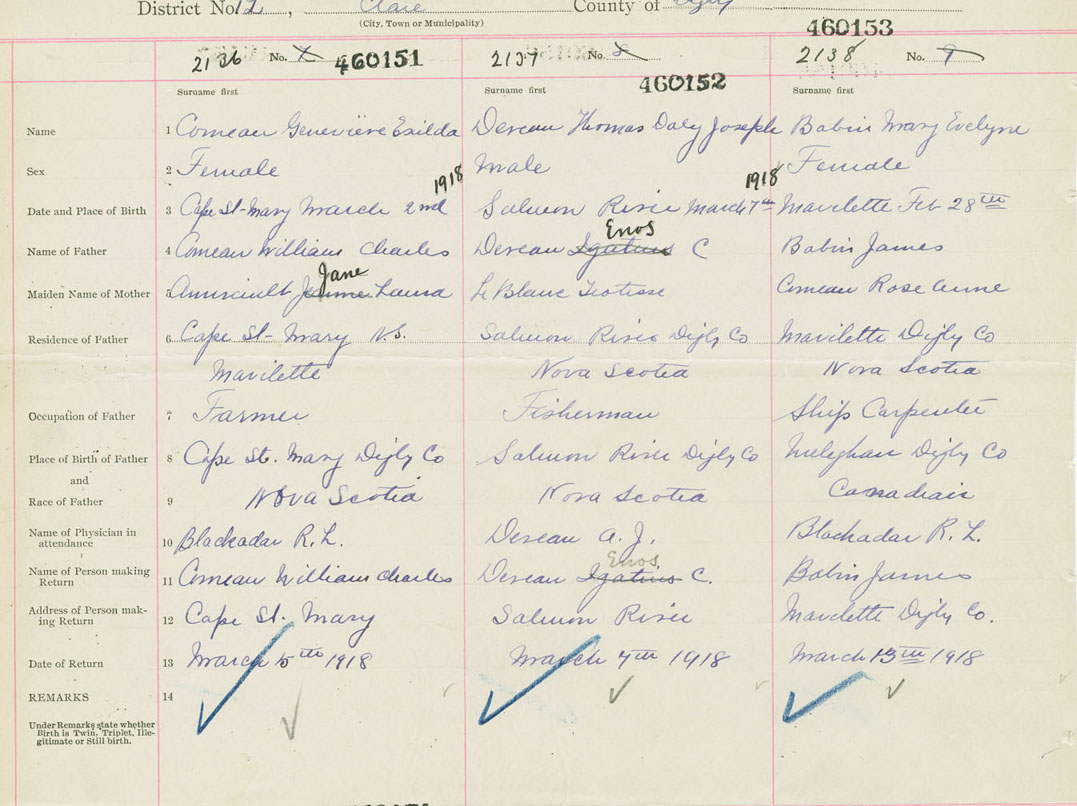 District No. 12, Clare County of Digby
(City, Town or Municipality)
460153
2136 No. 460151 2137 No. 2138 No. 9
460152
Surname first Surname first Surname first
Name 1 Comeau Geneviève Exilda Deveau Thomas Daly Joseph Babin Mary Evelyne
Sex 2 Female Male Female
1918 1918
Date and Place of Birth 3 Cape St-Mary March 2nd Salmon River March 7th Mavilette Feb 28th
Enos
Name of Father 4 Comeau William Charles Deveau Igatius C Babin James
Jane
Maiden Name of Mother 5 Amirault Laura LeBlanc Comeau Rose Anne
Residence of Father 6 Cape St- Mary N.S. Salmon River Digby Co Mavilette Digby Co
Mavilette Nova Scotia Nova Scotia
Occupation of Father 7 Farmer Fisherman Ship Carpenter
Place of Birth of Father 8 Cape St. Mary Digby Co Salmon River Digby Co Meteghan Digby Co
and
Race of Father 9 Nova Scotia Nova Scotia Canadian
Name of Physician in
attendance 10 Blackadar R. L. Deveau A. J. Blackadar R. L.
Enos
Name of Person making
Return 11 Comeau William Charles Deveau Igatius C. Babin James
Address of Person mak-
ing Return 12 Cape St. Mary Salmon River Mavilette Digby Co.
Date of Return 13 March 5th 1918 March 7th 1918 March 13th 1918
REMARKS 14
Under Remarks state whether
Birth is Twin, Triplet, Ille-
gitimate or Still-birth.